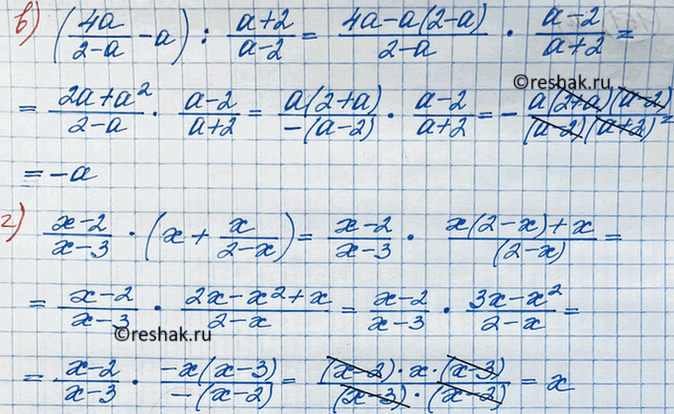 в) (4a/(2-a) - a) : (a+2)/(a-2) = (4a-a(2-a))/(2-a) · (a-2)/(a+2) =
©reshak.ru
= (2a+a²)/(2-a) · (a-2)/(a+2) = (a(2+a))/(-(a-2)) · (a-2)/(a+2) = - (a(2+a)(a-2))/((a-2)(a+2)) =
= -a
г) (x-2)/(x-3) · (x + x/(2-x)) = (x-2)/(x-3) · (x(2-x)+x)/((2-x)) =
= (x-2)/(x-3) · (2x-x²+x)/(2-x) = (x-2)/(x-3) · (3x-x²)/(2-x) =
©reshak.ru
= (x-2)/(x-3) · (-x(x-3))/(-(x-2)) = ((x-2)·x·(x-3))/((x-3)·(x-2)) = x